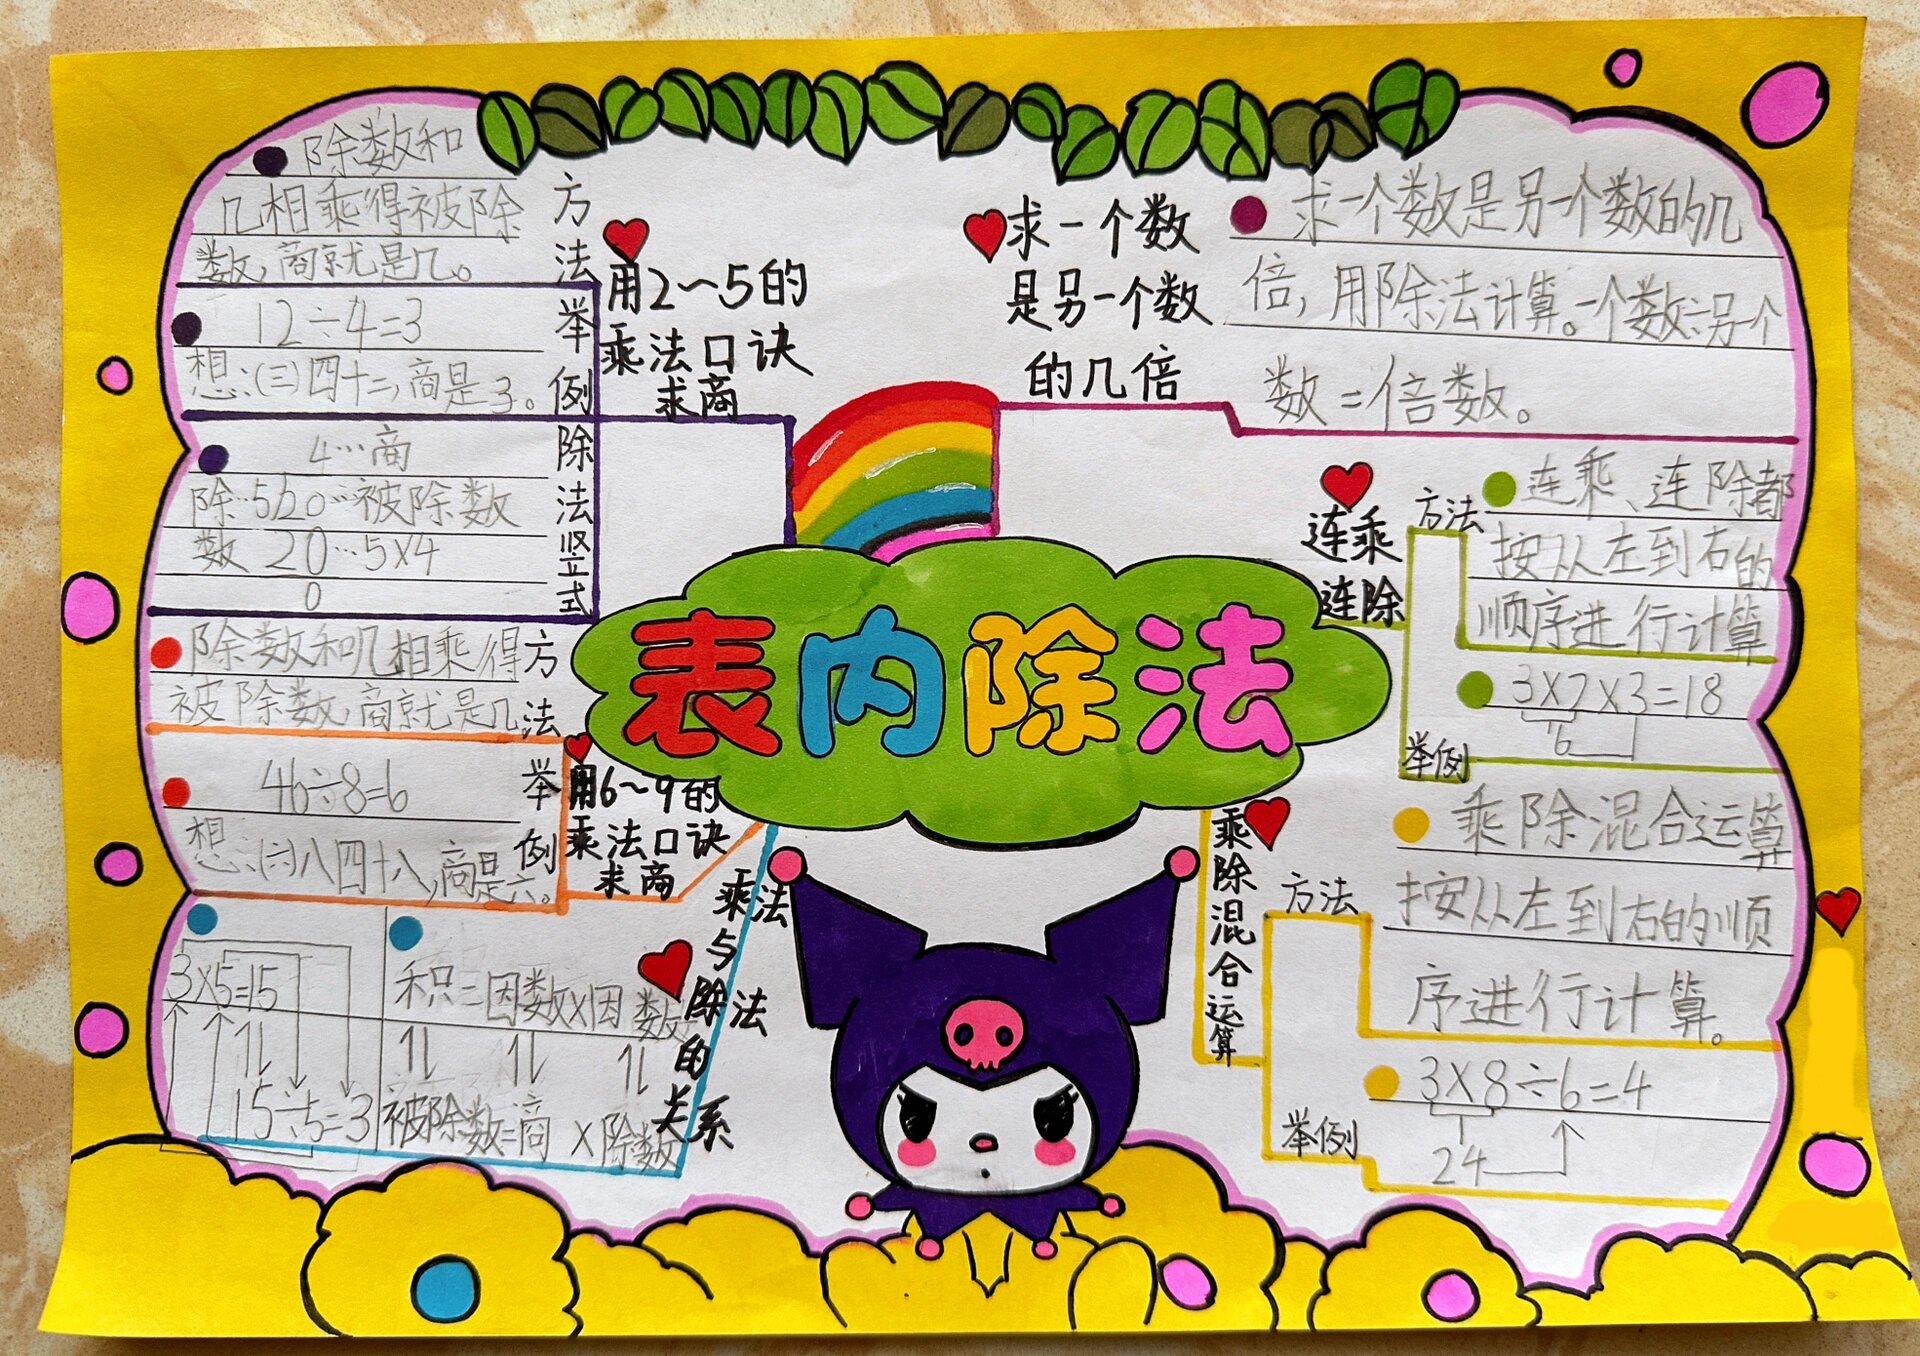 表内除法
用2~5的
乘法口诀
求商
方法
除数和
几相乘得被除
数,商就是几。
举例
12÷4=3
想:(三)四十二,商是3。
除法竖式
4…商
除…5 20…被除数
数 20…5×4
0
用6~9的
乘法口诀
求商
方法
除数和几相乘得
被除数,商就是几
举例
46÷8=6
想:(六)八四十八,商是六。
乘法
与
除法
的
关系
3×5=15
15÷5=3
积=因数×因数
被除数=商×除数
求一个数
是另一个数
的几倍
求一个数是另一个数的几
倍,用除法计算。一个数÷另一个
数=倍数。
连乘
连除
方法
连乘、连除都
按从左到右的
顺序进行计算
举例
3×2×3=18
6
乘除混合运算
方法
乘除混合运算
按从左到右的顺
序进行计算。
举例
3×8÷6=4
24